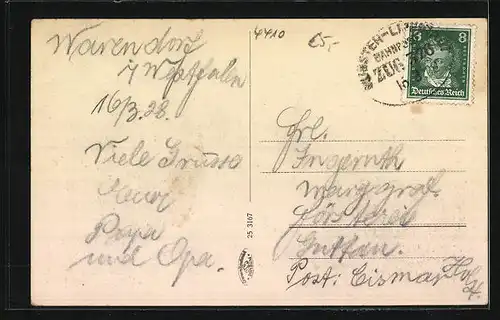 Warendorf
i/ Westfalen
16/3.28.
Viele Grüsse
Euer
Papa
und Opa.
4410
85,-
25 3167
MÜNSTER-L
BAHNPOST
ZUG
8
Deutsches Reich
Frl.
Ingeruth
Marggraf.
Försterei
Guttau.
Post: Cismar Holst.